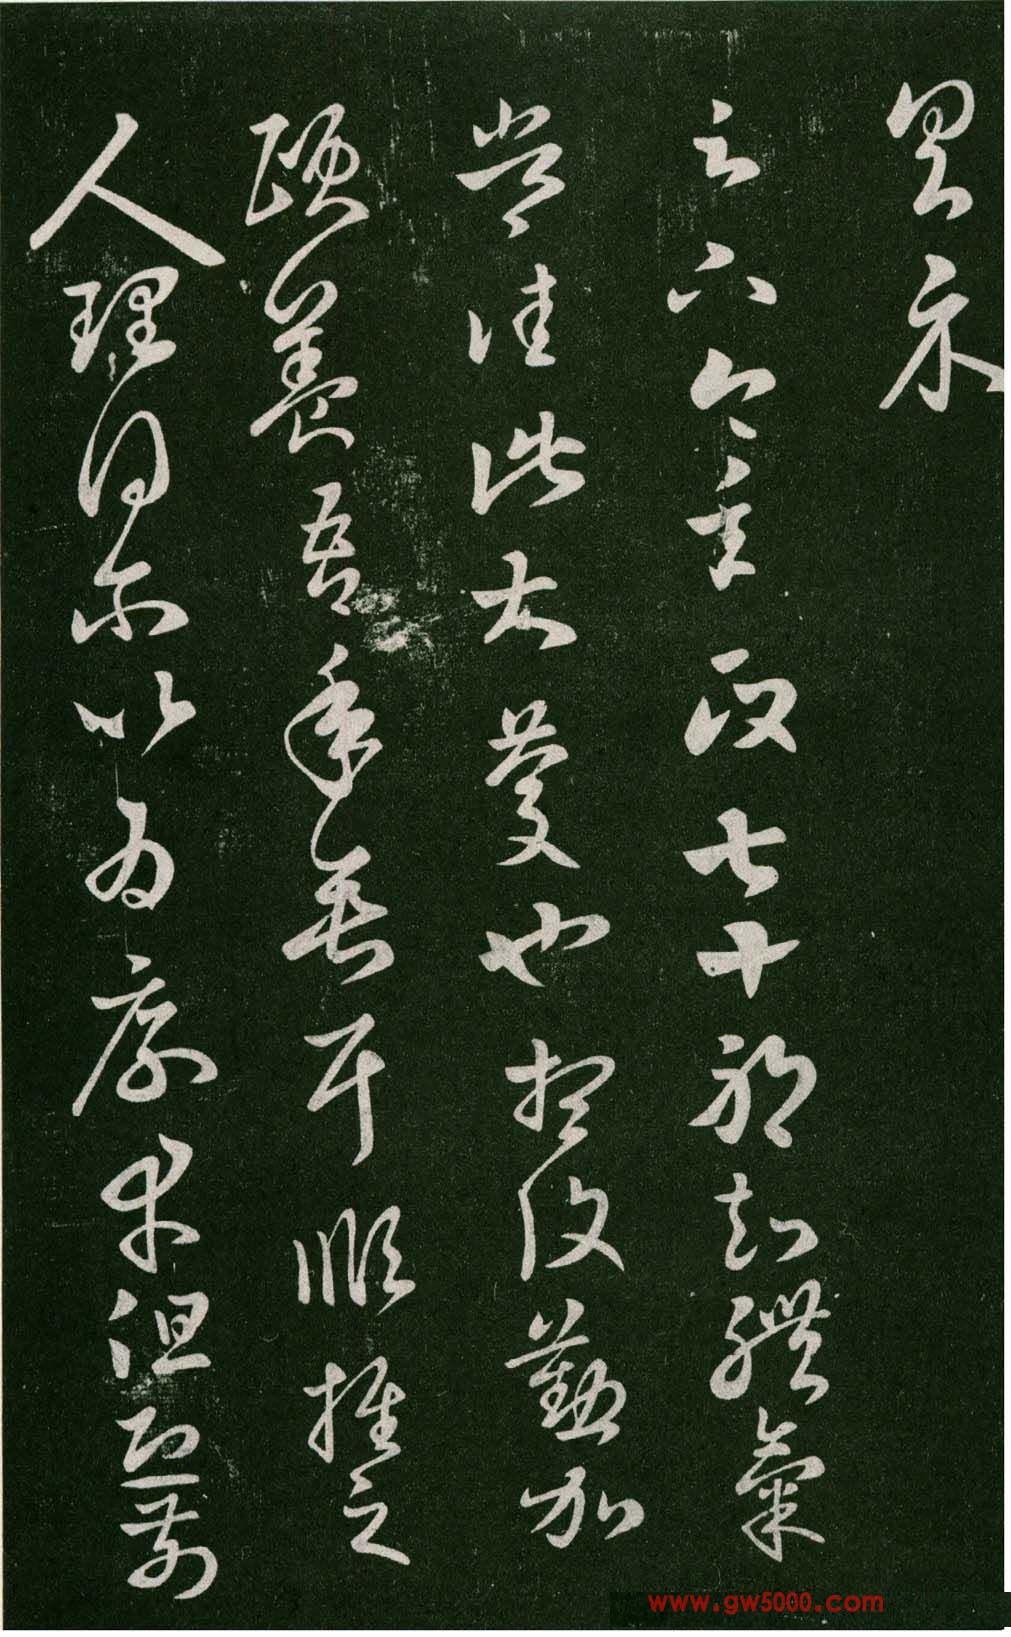 具示
足下今年政七十耶知體氣
常佳此大慶也想復懃加
頤養吾年垂耳順推之
人理得爾以為厚幸但恐前
www.gw5000.com